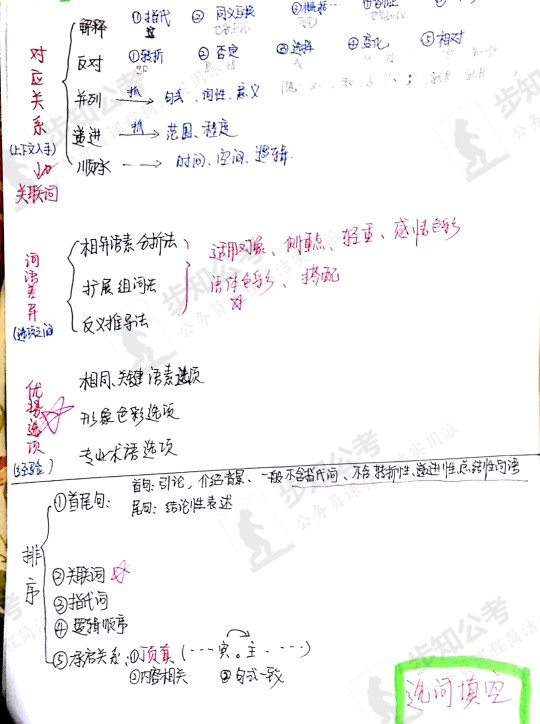 解释 ①指代 ②同义互换
对应关系 反对 ①转折 ②否定 ③选择 ④变化 ⑤相对
(上下文入手) 并列 抓 句式、词性、意义
递进 抓 范围、程度
关联词 顺承 时间、空间、逻辑
词语差异 相异语素分析法 适用对象、侧重点、轻重、感情色彩
扩展组词法 语体色彩、搭配
(选项之间) 反义推导法
优势选项 相同、关键语素选项
形象色彩选项
(经验) 专业术语选项
首句:引论,介绍背景、一般不含指代词、不含转折性、递进性、总结性词语
①首尾句:
尾句:结论性表述
排序
②关联词
③指代词
④逻辑顺序
⑤承启关系:①顶真(···宾。主···)
②内容相关 ③句式一致
选词填空
步知公考
公务员课程简洁实用派
步知公考
公务员课
步知公考
公务员课程简洁实用派
步知公考
课程简洁